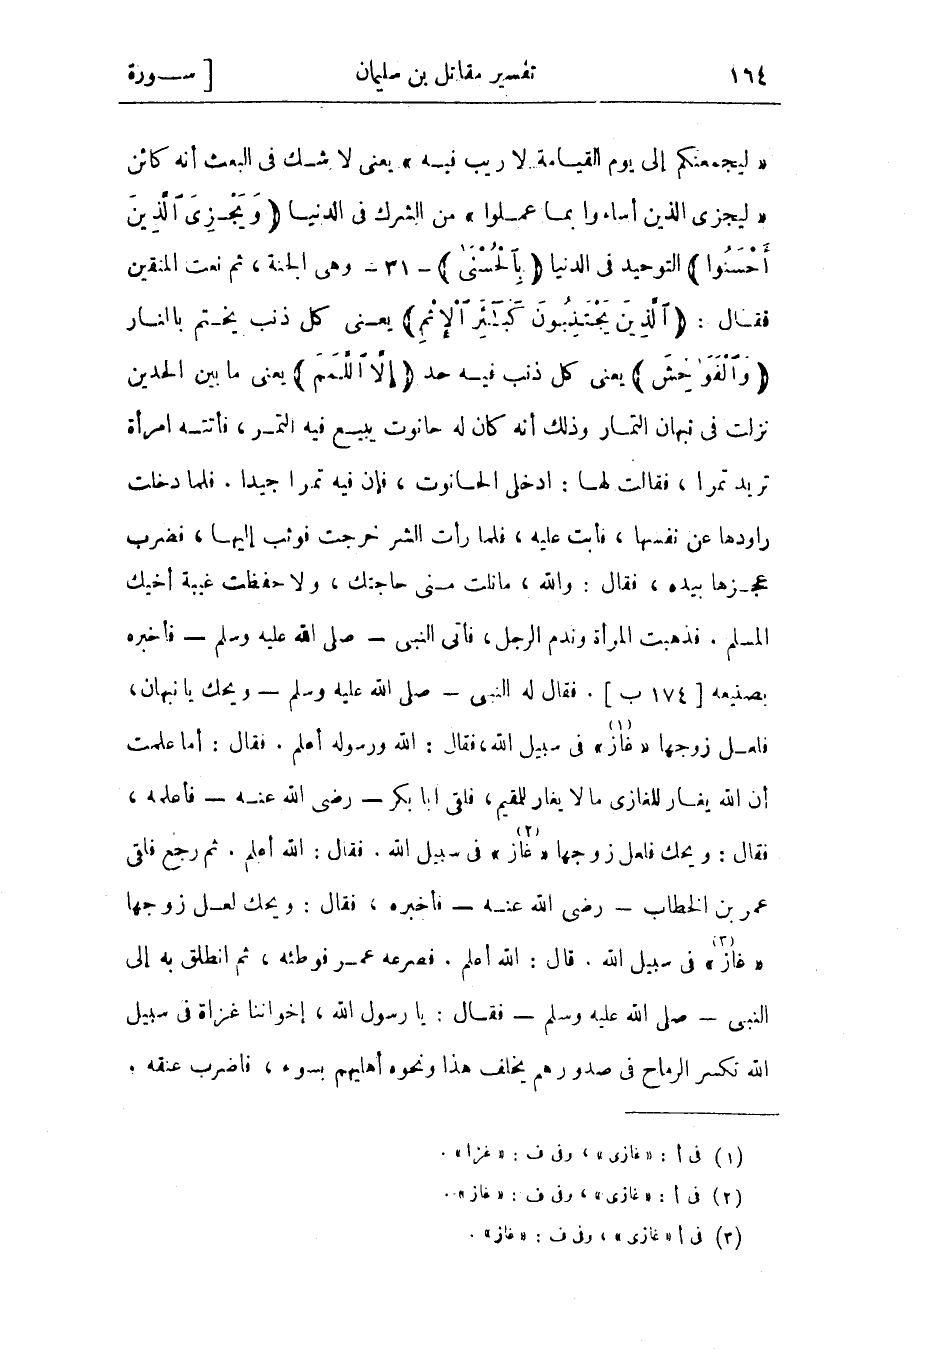 ١٦٤ تفسير مقاتل بن سليمان [ ســـورة
« ليجمعنكم إلى يوم القيامة لا ريب فيه » يعنى لا شك فى البعث أنه كائن
« ليجزى الذين أساءوا بما عملوا » من الشرك فى الدنيا ( وَيَجْزِىَ ٱلَّذِينَ
أَحْسَنُوا ) التوحيد فى الدنيا ( بِٱلْحُسْنَىٰ ) - ٣١ - وهى الجنة ، ثم نعت المتقين
فقال : ( ٱلَّذِينَ يَجْتَنِبُونَ كَبَـٰٓئِرَ ٱلْإِثْمِ ) يعنى كل ذنب يختم بالنار
( وَٱلْفَوَٰحِشَ ) يعنى كل ذنب فيه حد ( إِلَّا ٱللَّمَمَ ) يعنى ما بين الحدين
نزلت فى نبهان التمار وذلك أنه كان له حانوت يبيع فيه التمر ، فأتته امرأة
تريد تمرا ، فقالت لها : ادخلى الحانوت ، فإن فيه تمرا جيدا . فلما دخلت
راودها عن نفسها ، فأبت عليه ، فلما رأت الشر خرجت فوثب إليها ، فضرب
عجزها بيده ، فقال : والله ، مانلت منى حاجتك ، ولا حفظت غيبة أخيك
المسلم . فذهبت المرأة وندم الرجل ، فأتى النبى - صلى الله عليه وسلم - فأخبره
بصنيعه [ ١٧٤ ب ] . فقال له النبى - صلى الله عليه وسلم - ويحك يا نبهان ،
فلعل زوجها « غاز » (١) فى سبيل الله ، فقال : الله ورسوله أعلم . فقال : أما علمت
أن الله يغار للغازى ما لا يغار للمقيم ، فلقى ابا بكر - رضى الله عنه - فأعلمه ،
فقال : ويحك فلعل زوجها « غاز » (٢) فى سبيل الله . فقال : الله أعلم . ثم رجع فلقى
عمر بن الخطاب - رضى الله عنه - فأخبره ، فقال : ويحك لعل زوجها
« غاز » (٣) فى سبيل الله . قال : الله أعلم . فصرعه عمر فوطئه ، ثم انطلق به إلى
النبى - صلى الله عليه وسلم - فقال : يا رسول الله ، إخواننا غزاة فى سبيل
الله تكسر الرماح فى صدورهم يخلف هذا ونحوه أهليهم بسوء ، فاضرب عنقه .
(١) فى أ : « غازى » ، وفى ف : « غزا » .
(٢) فى أ : « غازى » ، وفى ف : « غاز » .
(٣) فى أ « غازى » ، وفى ف : « غاز » .